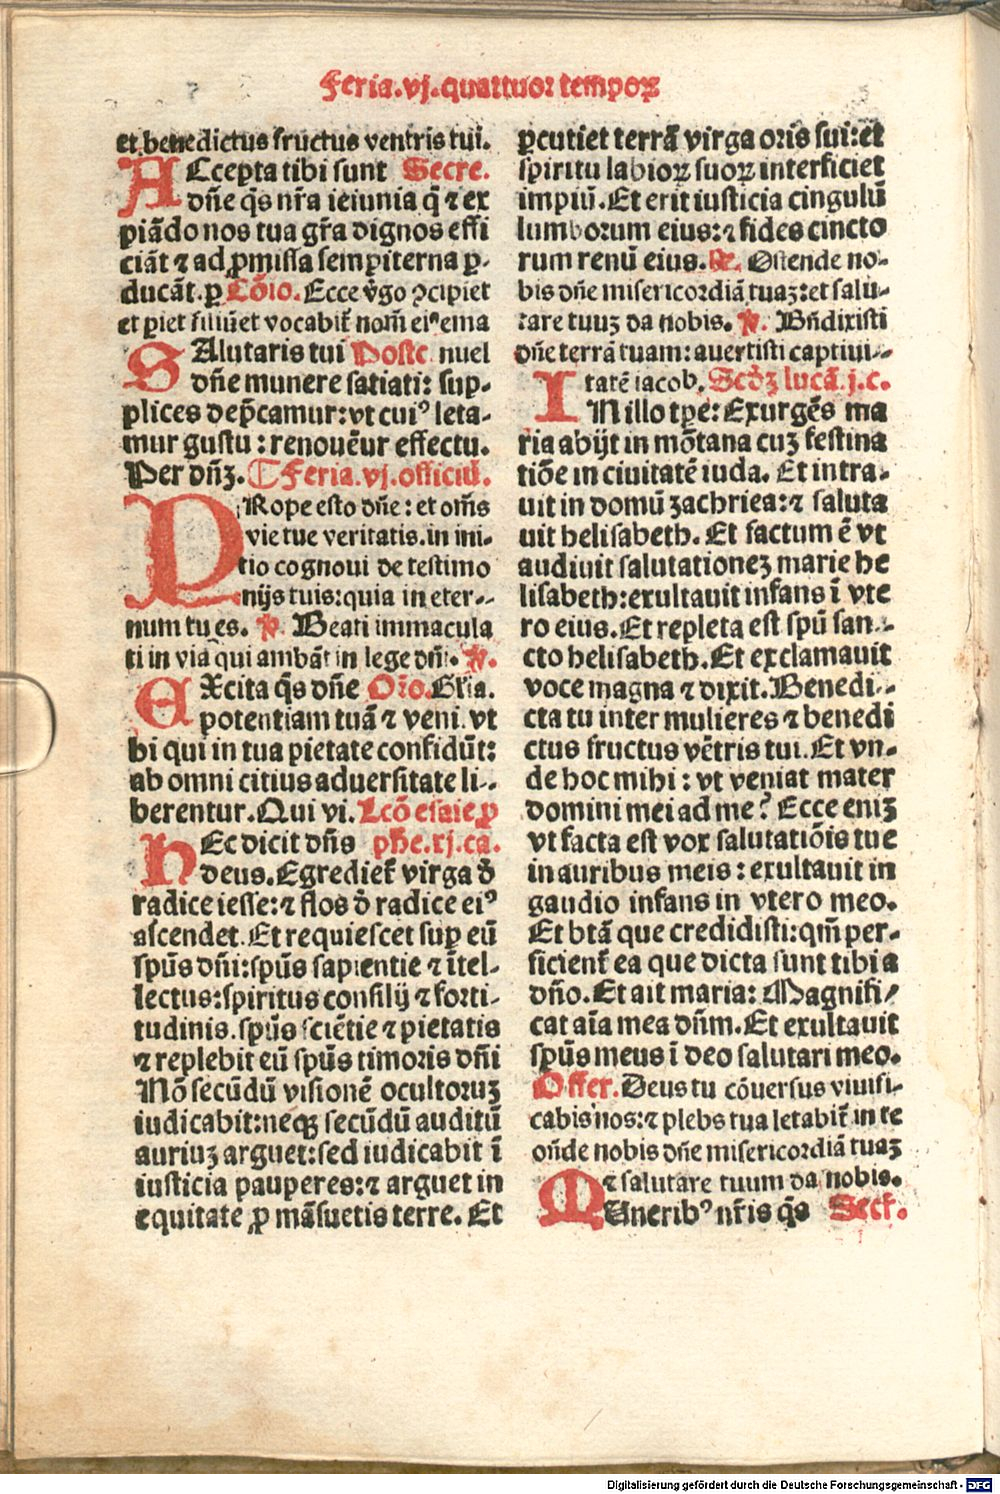 Feria.vj.quattuor temporꝝ
et benedictus fructus ventris tui.
ACcepta tibi sunt Secre.
dn̄e q̄s nr̄a ieiunia q̄ ⁊ ex
piādo nos tua gr̄a dignos effi
ciāt ⁊ ad ꝓmissa sempiterna ꝑ-
ducāt.ꝑ Cōio. Ecce v̄go ꝯcipiet
et ꝑiet filiū et vocabit̄ nom̄ eiꝰ ema
SAlutaris tui Postc nuel
dn̄e munere satiati: sup-
plices dep̄camur: vt cuiꝰ leta-
mur gustu: renouēur effectu.
Per dn̄ꝫ. Feria.vj.officiū.
PRope esto dn̄e: et om̄s
vie tue veritatis. in ini-
tio cognoui de testimo
nijs tuis: quia in eter-
num tu es. ꝟ. Beati immacula
ti in via qui ambāt in lege dn̄i. ꝟ.
EXcita q̄s dn̄e Or̄o. Gl̄ia.
potentiam tuā ⁊ veni. vt
hi qui in tua pietate confidūt:
ab omni citius aduersitate li-
berentur. Qui vi. Lcō esaie ꝓ
HEc dicit dn̄s phe.xj.ca.
deus. Egrediet̄ virga đ
radice iesse: ⁊ flos đ radice eiꝰ
ascendet. Et requiescet suꝑ eū
spūs dn̄i: spūs sapientie ⁊ ītel-
lectus: spiritus consilij ⁊ forti-
tudinis. spūs sciētie ⁊ pietatis
⁊ replebit eū spūs timoris dn̄i
Nō secūdū visionē ocultoruꝫ
iudicabit: neqꝫ secūdū auditū
auriuꝫ arguet: sed iudicabit ī
iusticia pauperes: ⁊ arguet in
equitate ꝓ māsuetis terre. Et
ꝑcutiet terrā virga oris sui: et
spiritu labioꝝ suoꝝ interficiet
impiū. Et erit iusticia cingulū
lumborum eius: ⁊ fides cincto
rum renū eius. ℟. Ostende no-
bis dn̄e misericordiā tuaꝫ: et salu-
tare tuuꝫ da nobis. ꝟ. Bn̄dixisti
dn̄e terrā tuam: auertisti captiui-
tatē iacob. Scd̄ꝫ lucā.j.c.
IN illo tꝑe: Exurgēs ma
ria abijt in mōtana cuꝫ festina
tiōe in ciuitatē iuda. Et intra-
uit in domū zachriea: ⁊ saluta
uit helisabeth. Et factum ē vt
audiuit salutationeꝫ marie he
lisabeth: exultauit infans ī vte
ro eius. Et repleta est spū san-
cto helisabeth. Et exclamauit
voce magna ⁊ dixit. Benedi-
cta tu inter mulieres ⁊ benedi
ctus fructus vētris tui. Et vn-
de hoc mihi: vt veniat mater
domini mei ad me? Ecce eniꝫ
vt facta est vox salutatiōis tue
in auribus meis: exultauit in
gaudio infans in vtero meo.
Et btā que credidisti: qm̄ per-
ficient̄ ea que dicta sunt tibi a
dn̄o. Et ait maria: Magnifi/
cat aīa mea dn̄m. Et exultauit
spūs meus ī deo salutari meo.
Offer. Deus tu cōuersus viuifi-
cabis nos: ⁊ plebs tua letabit̄ in te
on̄de nobis dn̄e misericordiā tuaꝫ
⁊ salutare tuum da nobis.
MUneribꝰ nr̄is q̄s Secr̄.
Digitalisierung gefördert durch die Deutsche Forschungsgemeinschaft - DFG